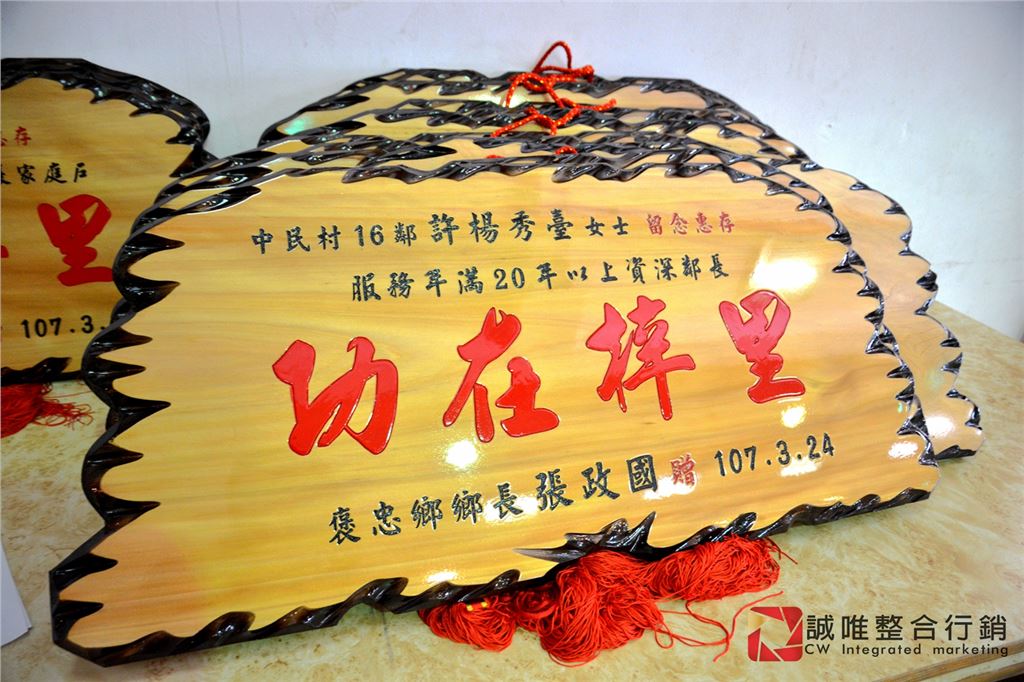 中民村16鄰許楊秀臺女士 留念惠存
服務年滿20年以上資深鄰長
功在梓里
褒忠鄉鄉長張政國 贈 107.3.24
存
家庭戶
里
107.3.
誠唯整合行銷
CW Integrated marketing